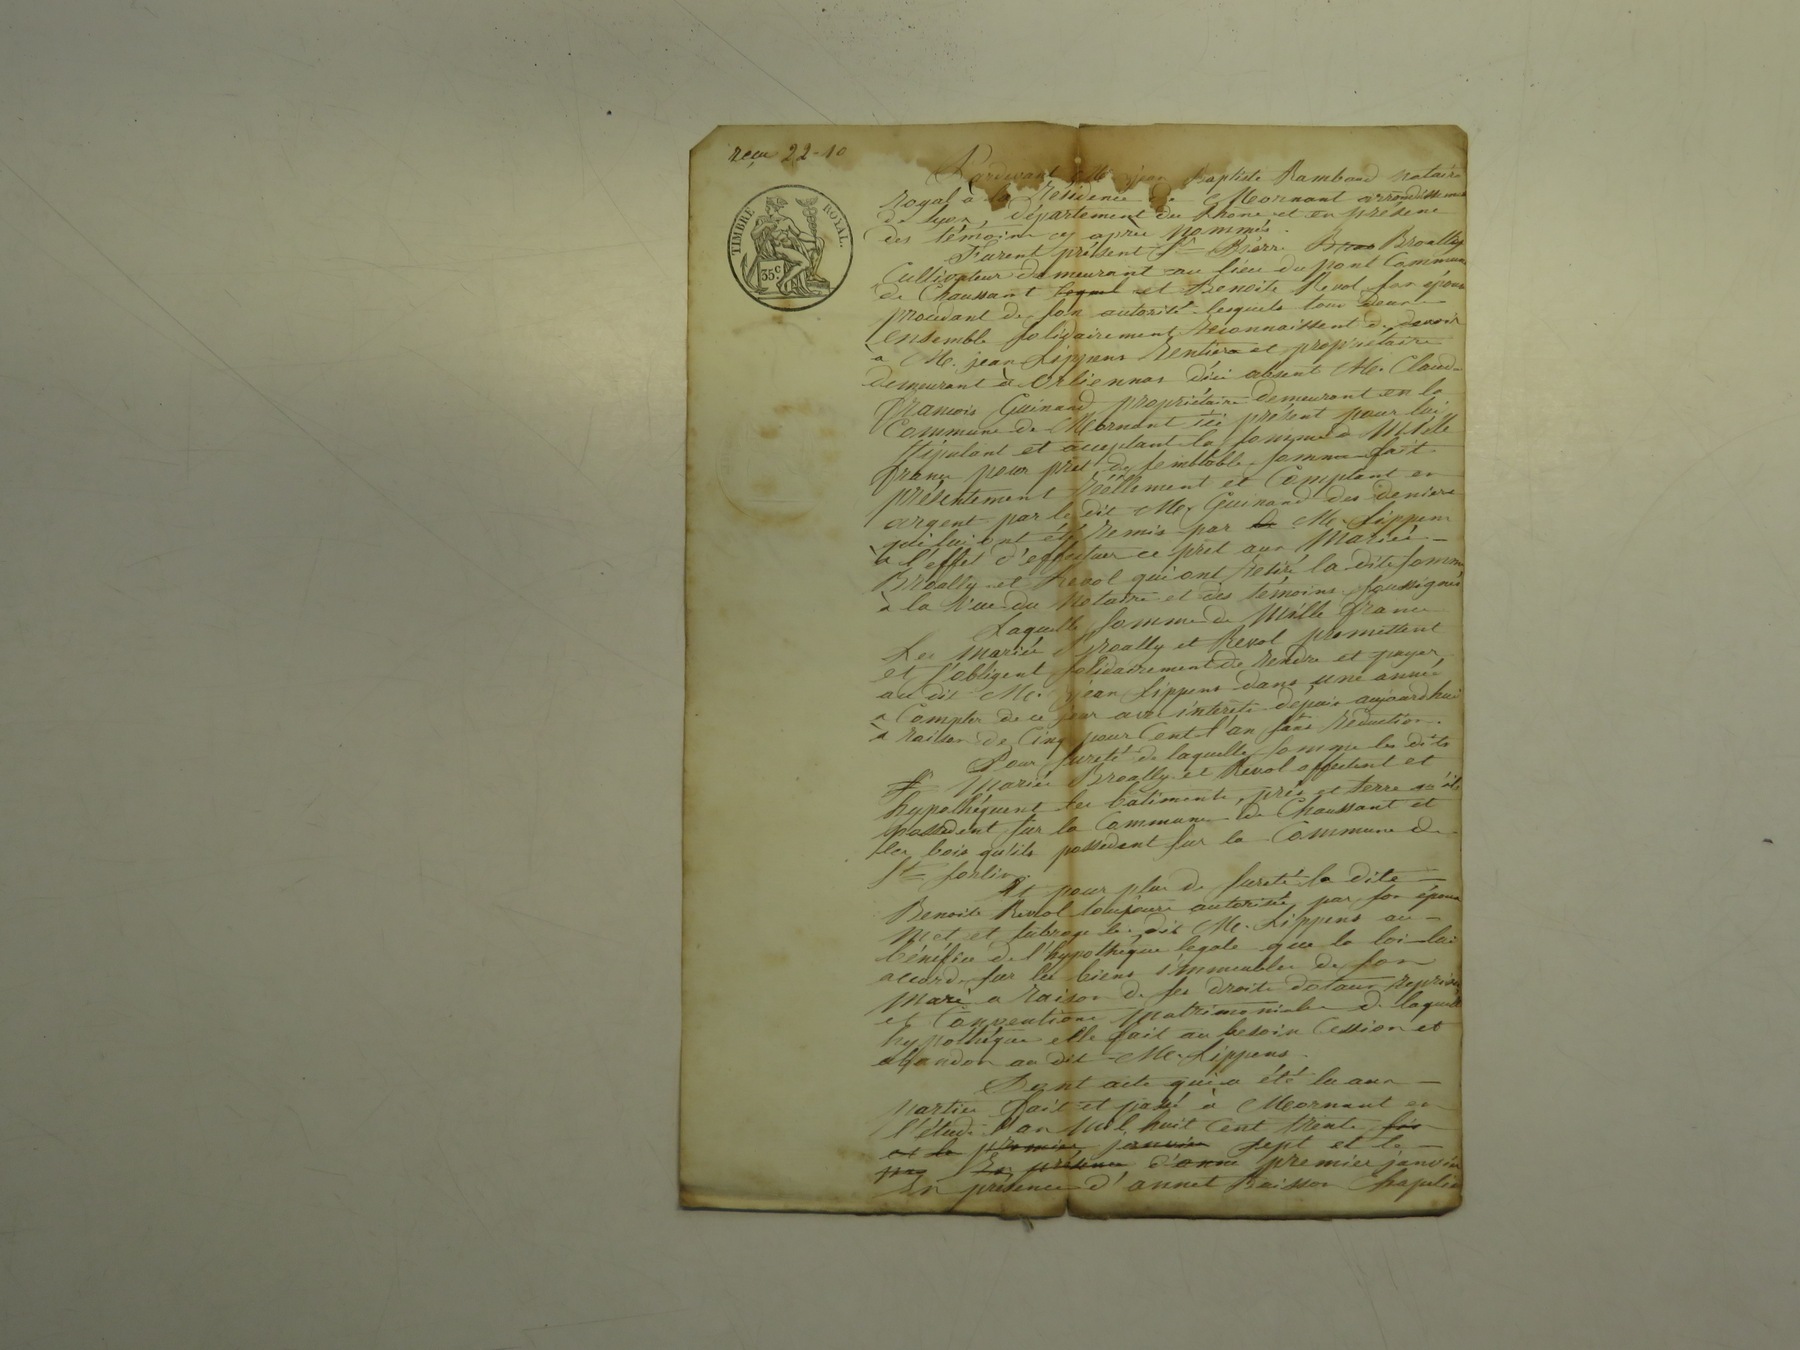 reçu 22-10
TIMBRE ROYAL.
35c
Pardevant Me jean Baptiste Rambaud notaire
royal à la Résidence de Mornant arrondissement
de lyon, département du Rhône et en présence
des témoins cy après nommés.
Furent présent Sr Pierre Broally
Cultivateur demeurant au lieu du pont Commune
de Chaussant lequel et Benoite Revol son épouse
procédant de son autorité lesquels tous deux
ensemble solidairement reconnaissent de devoir
à M. jean Lippens Rentier et propriétaire
demeurant à Orliennas d'ici absent M. Claude
françois Guinand propriétaire demeurant en la
Commune de Mornant ici présent pour lui
stipulant et acceptant la somme de Mille
francs pour prêt de semblable somme fait
présentement réellement et Comptant en
argent par le dit M. Guinand des deniers
qui lui ont été remis par M. Lippens
à l'effet d'effectuer ce prêt aux Mariés
Broally et Revol qui ont retiré la dite somme
à la vue du Notaire et des témoins soussignés
Laquelle somme de Mille francs
Les Mariés Broally et Revol promettent
et s'obligent solidairement de rendre et payer
au dit M. jean Lippens dans une année
à Compter de ce jour avec intérêts depuis aujourdhui
à raison de Cinq pour Cent l'an sans réduction.
Pour sureté de laquelle somme les dits
Mariés Broally et Revol affectent et
hypothéquent les bâtiments, prés et terre qu'ils
possèdent sur la Commune de Chaussant et
les bois qu'ils possèdent sur la Commune de
St Sorlin.
Et pour plus de sureté la dite
Benoite Revol toujours autorisée par son époux
met et subroge le dit M. Lippens au
bénéfice de l'hypothèque légale que la loi lui
accorde sur les biens immeubles de son
mari a raison de ses droits dotaux reprises
et Conventions matrimoniales de laquelle
hypothèque elle fait au besoin Cession et
abandon au dit M. Lippens.
Dont acte qui a été lu aux
parties fait et passé à Mornant en
l'étude l'an Mil huit Cent trente
et le premier janvier sept et le
En présence d'anne premier janvier
En présence d'annet Buisson Chapelier